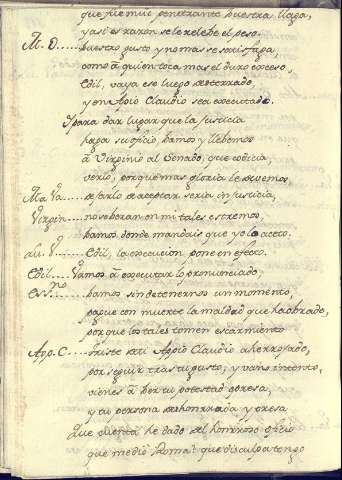 que fue mui penetrante vuestra llaga,
y asi es razon se le relebe el peso.
M. O..... vuestro gusto y no mas se satisfaga,
como a quien toca mas el duro exceso,
Edil, vaya ese luego desterrado,
y en Apio Claudio sea executado.
Y para dar lugar que la justicia
haga su oficio, bamos y llebemos
a Virginio al Senado, que codicia,
verlo, porque mas gloria le demos
dejarlo de aceptar seria injusticia,
Virgin... no se veran en mi tales estremos,
bamos donde mandais que yo lo aceto.
Lu. V... Edil, la execucion pone en efecto.
Edil.... Vamos a executar lo pronunciado
bamos sin detenernos un momento,
pague con muerte la maldad que ha obrado,
porque los tales tomen escarmiento
App. C.... triste de ti Appio Claudio aherrojado,
por seguir tras tu gusto, y vano intento,
vienes a ver tu potestad opresa,
y tu persona deshonrrada y presa
Que cuenta he dado del honrroso oficio
que me dio Roma? que disculpa tengo